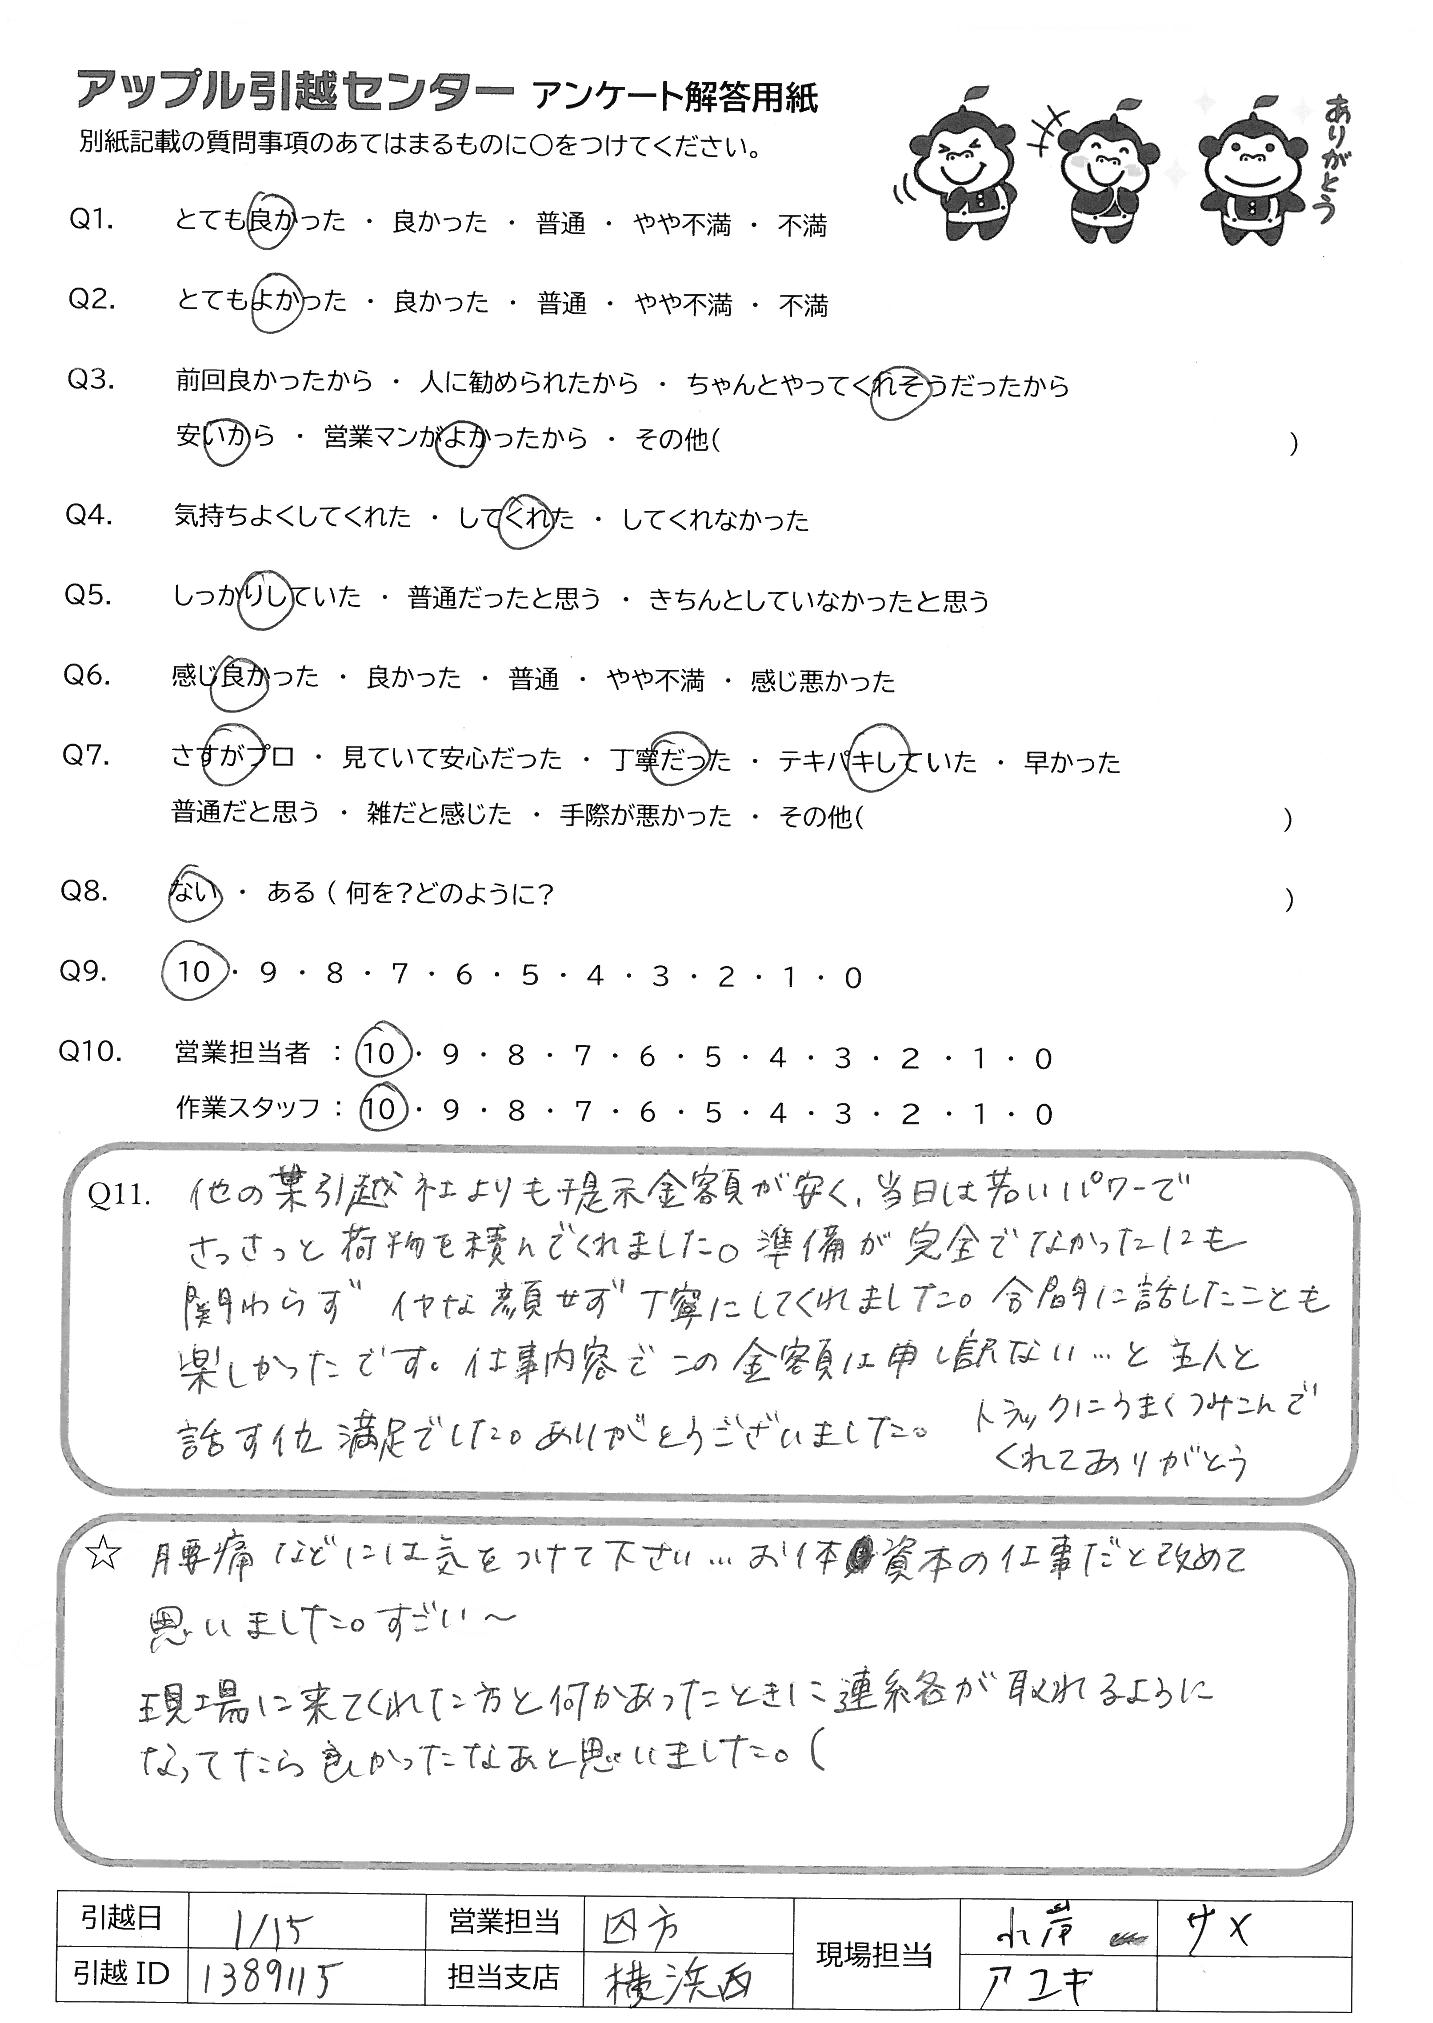 アップル引越センター アンケート解答用紙
ありがとう
別紙記載の質問事項のあてはまるものに〇をつけてください。
Q1. とても良かった ・ 良かった ・ 普通 ・ やや不満 ・ 不満
Q2. とてもよかった ・ 良かった ・ 普通 ・ やや不満 ・ 不満
Q3. 前回良かったから ・ 人に勧められたから ・ ちゃんとやってくれそうだったから
安いから ・ 営業マンがよかったから ・ その他( )
Q4. 気持ちよくしてくれた ・ してくれた ・ してくれなかった
Q5. しっかりしていた ・ 普通だったと思う ・ きちんとしていなかったと思う
Q6. 感じ良かった ・ 良かった ・ 普通 ・ やや不満 ・ 感じ悪かった
Q7. さすがプロ ・ 見ていて安心だった ・ 丁寧だった ・ テキパキしていた ・ 早かった
普通だと思う ・ 雑だと感じた ・ 手際が悪かった ・ その他( )
Q8. ない ・ ある ( 何を?どのように? )
Q9. 10 ・ 9 ・ 8 ・ 7 ・ 6 ・ 5 ・ 4 ・ 3 ・ 2 ・ 1 ・ 0
Q10. 営業担当者 : 10 ・ 9 ・ 8 ・ 7 ・ 6 ・ 5 ・ 4 ・ 3 ・ 2 ・ 1 ・ 0
作業スタッフ : 10 ・ 9 ・ 8 ・ 7 ・ 6 ・ 5 ・ 4 ・ 3 ・ 2 ・ 1 ・ 0
Q11. 他の引越社よりも提示金額が安く、当日は若いパワーで
さっさっと荷物を積んでくれました。準備が完全でなかったにも
関わらず イヤな顔せず丁寧にしてくれました。合間に話したことも
楽しかったです。仕事内容でこの金額は申し訳ない…と主人と
話す位満足でした。ありがとうございました。
トラックにうまくつみこんで
くれてありがとう
☆ 腰痛などには気をつけて下さい…お体資本の仕事だと改めて
思いました。すごい～
現場に来てくれた方と何かあったときに連絡が取れるように
なってたら良かったなぁと思いました。(
引越日 1/15 営業担当 四方 現場担当 サメ
引越ID 1389115 担当支店 横浜西 アユキ